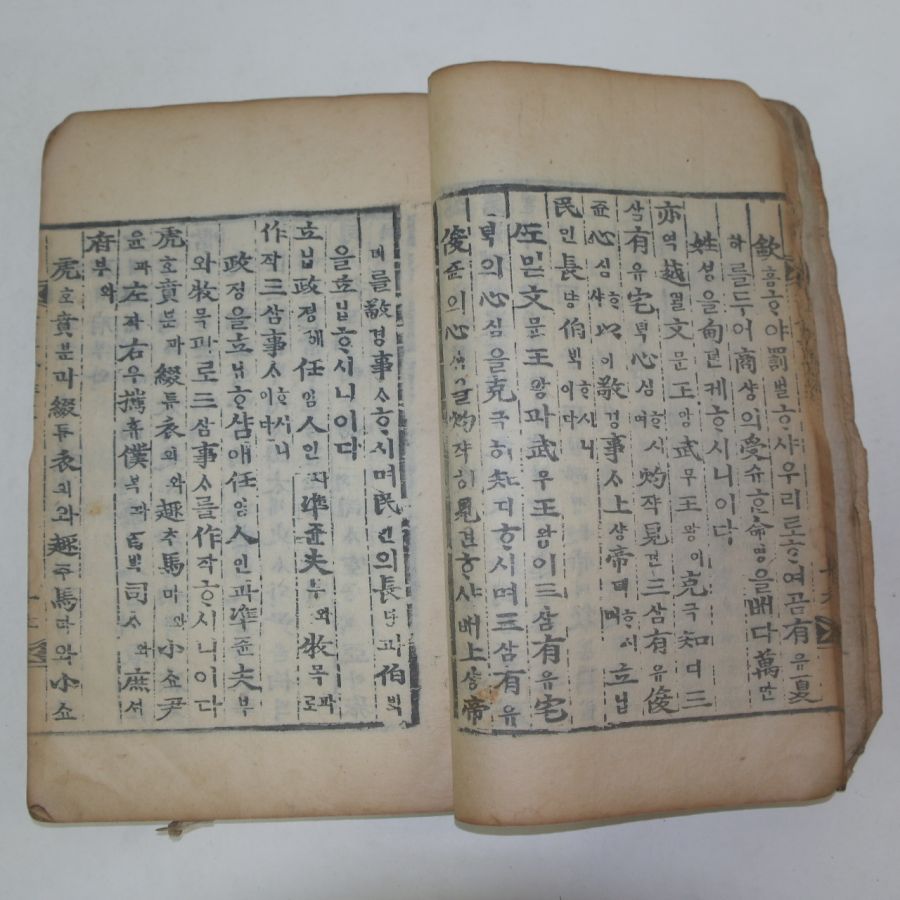 欽흠ᄒᆞ야罰벌ᄒᆞ샤우리로ᄒᆞ여곰有유夏
하를두어商샹의受슈ᄒᆞᆫ命명을ᄡᅥ다萬만
姓셩을甸뎐케ᄒᆞ시니이다
亦역越월文문王왕武무王왕이克극知디三
삼有유宅ᄐᆡᆨ心심ᄒᆞ시며灼쟉見견三삼有유俊
쥰心심ᄒᆞ샤以이敬경事ᄉᆞ上샹帝뎨ᄒᆞ시며立닙
民민長댱伯ᄇᆡᆨᄒᆞ시니이다
믿文문王왕과武무王왕이三삼有유宅
ᄐᆡᆨ의心심을克극히知디ᄒᆞ시며三삼有유
俊쥰의心심을灼쟉히見견ᄒᆞ샤ᄡᅥ上샹帝
뎨를敬경事ᄉᆞᄒᆞ시며民민의長댱과伯ᄇᆡᆨ
을立닙ᄒᆞ시니이다
立닙政졍에任임人인과準쥰夫부와牧목과로
作작三삼事ᄉᆞᄒᆞ시니이다
政졍을立닙ᄒᆞ샴애任임人인과準쥰夫부
와牧목과로三삼事ᄉᆞ를作작ᄒᆞ시니이다
虎호賁분과綴튜衣의와趣추馬마와小쇼尹
윤과左좌右우攜휴僕복과百ᄇᆡᆨ司ᄉᆞ와庶셔
府부와
虎호賁분과綴튜衣의와趣추馬마와小쇼